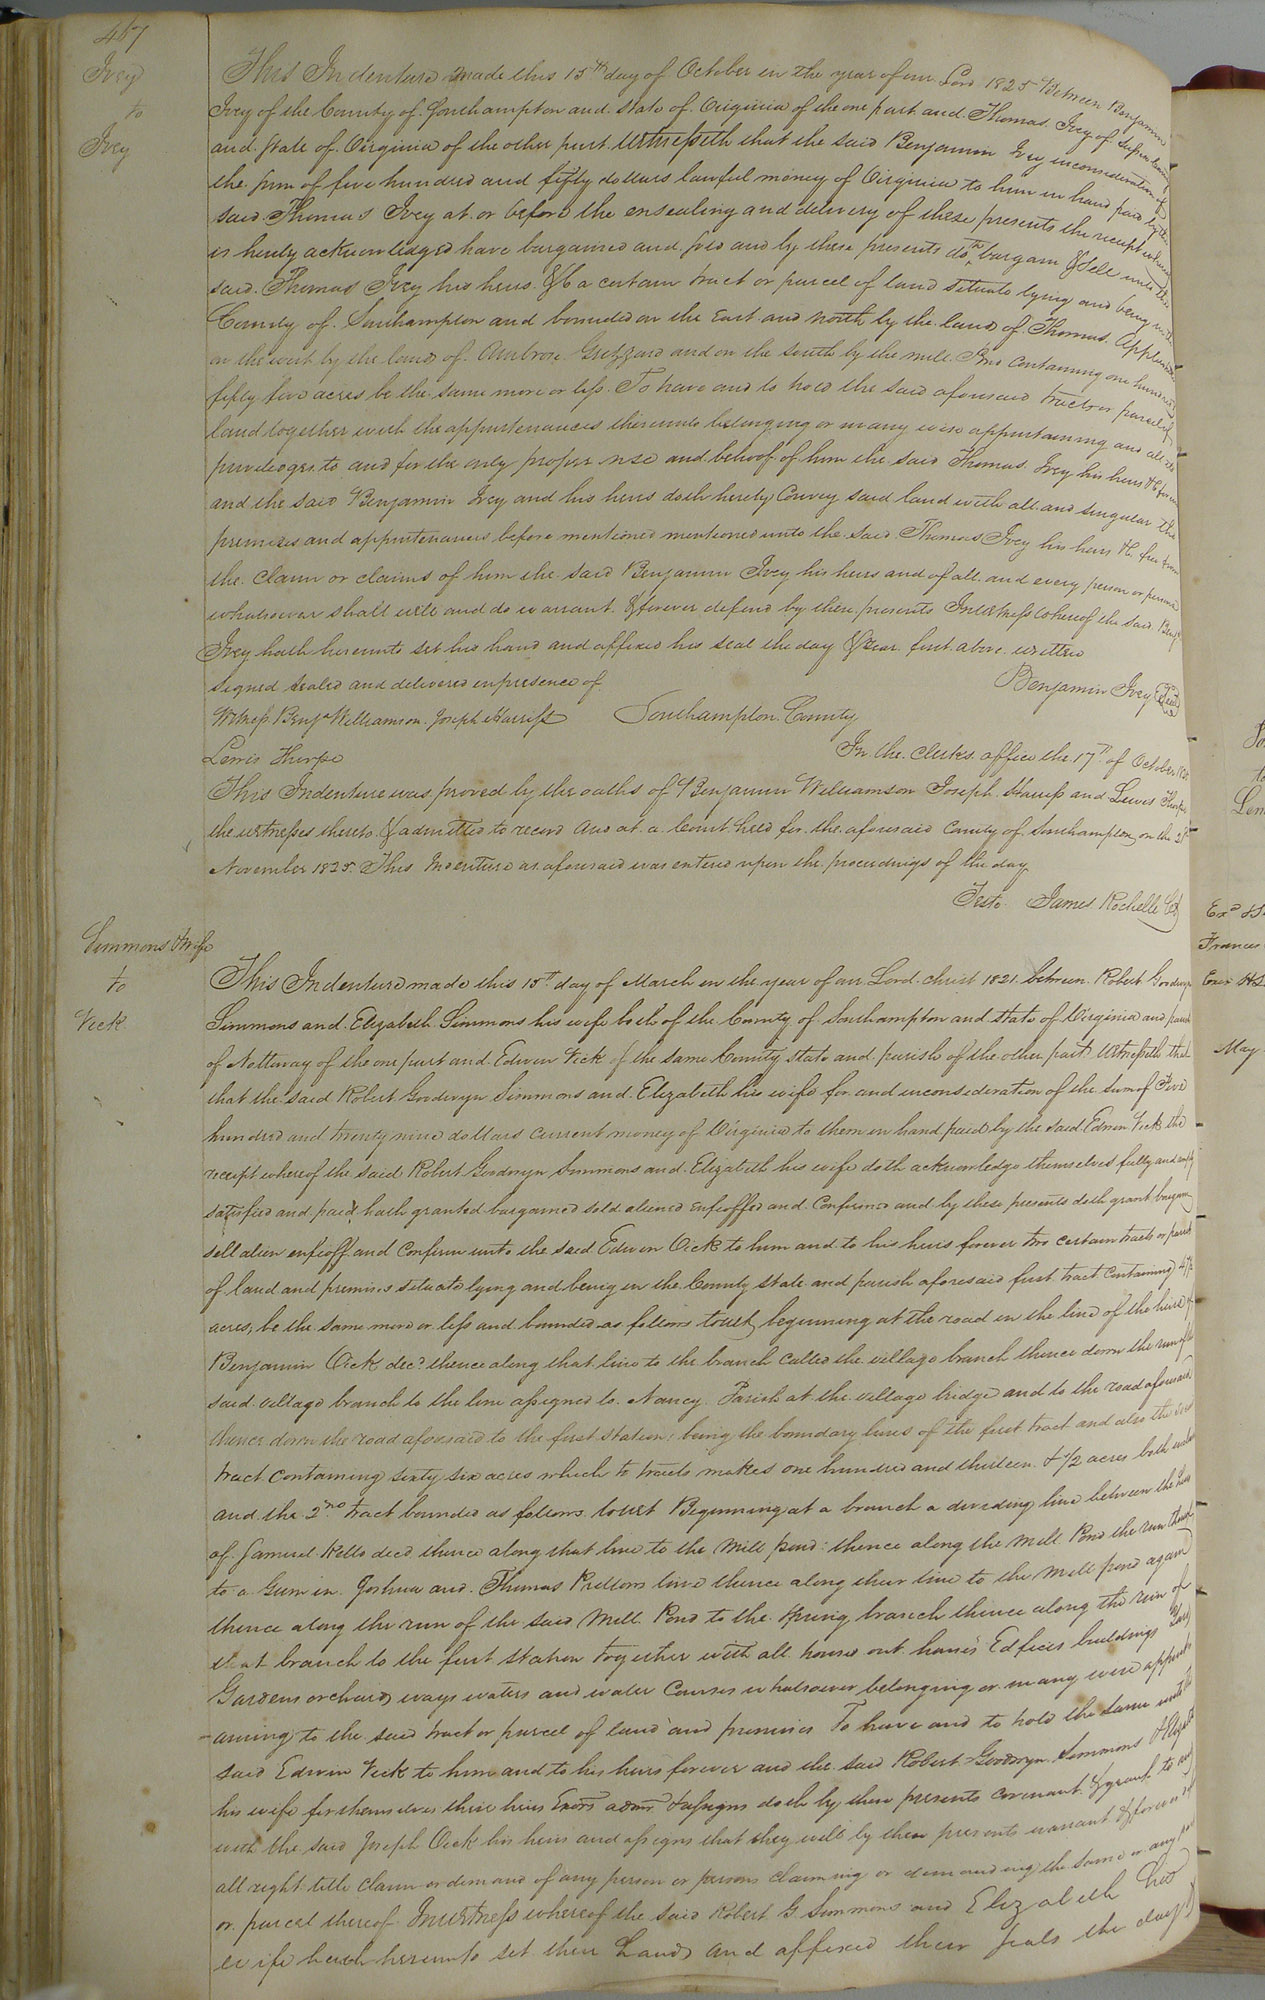 467
Ivey
to
Ivey
This Indenture made this 15th day of October in the year of our Lord 1825 Between Benjamin
Ivey of the County of Southampton and state of Virginia of the one part and Thomas Ivey of
and state of Virginia of the other part Witnesseth that the said Benjamin Ivey in consideration of
the sum of five hundred and fifty dollars lawful money of Virginia to him in hand paid by the
said Thomas Ivey at or before the ensealing and delivery of these presents the receipt whereof
is hereby acknowledged have bargained and sold and by these presents doth bargain & sell unto the
said Thomas Ivey his heirs &c a certain tract or parcel of land situate lying and being in the
County of Southampton and bounded on the East and North by the land of Thomas
on the west by the land of Ambrose Grizzard and on the south by the mill Pond containing one hundred
fifty five acres be the same more or less To have and to hold the said aforesaid tract or parcel of
land together with the appurtenances thereunto belonging or in any wise appertaining and all the
priviledges to and for the only proper use and behoof of him the said Thomas Ivey his heirs &c forever
and the said Benjamin Ivey and his heirs doth hereby Convey said land with all and singular the
premises and appurtenances before mentioned mentioned unto the said Thomas Ivey his heirs &c free from
the claim or claims of him the said Benjamin Ivey his heirs and of all and every person or persons
whatsoever shall will and do warrant & forever defend by these presents In witness whereof the said Benja
Ivey hath hereunto set his hand and affixed his seal the day & year first above written
Signed sealed and delivered in presence of
Benjamin Ivey Seal
Witness Benja Williamson Joseph Harriss
Southampton County
Lewis Thorpe
In the Clerks office the 17th of October 1825
This Indenture was proved by the oaths of Benjamin Williamson Joseph Harriss and Lewis Thorpe
the witnesses thereto & admitted to record And at a Court held for the aforesaid County of Southampton on the 21st
November 1825 This Indenture as aforesaid was entered upon the proceedings of the day
Teste James Rochelle Ck
Simmons & wife
to
Vick
This Indenture made this 15th day of March in the year of our Lord christ 1821 between Robert Goodwyn
Simmons and Elizabeth Simmons his wife both of the County of Southampton and state of Virginia and parish
of Nottoway of the one part and Edwin Vick of the same County state and parish of the other part Witnesseth that
that the said Robert Goodwyn Simmons and Elizabeth his wife for and in consideration of the sum of Five
hundred and twenty nine dollars current money of Virginia to them in hand paid by the said Edwin Vick the
receipt whereof the said Robert Goodwyn Simmons and Elizabeth his wife doth acknowledge themselves fully and
satisfied and paid hath granted bargained sold aliened enfeoffed and Confirmed and by these presents doth grant bargain
sell alien enfeoff and Confirm unto the said Edwin Vick to him and to his heirs forever two certain tracts or parcels
of land and premises situate lying and being in the County state and parish aforesaid first tract containing 47½
acres, be the same more or less and bounded as follows towit beginning at the road in the line of the heirs of
Benjamin Vick decd thence along that line to the branch called the village branch thence down the run of the
said village branch to the line assigned to Nancy Parish at the village bridge and to the road aforesaid
thence down the road aforesaid to the first station being the boundary lines of the first tract and also the
tract containing sixty six acres which to tracts makes one hundred and thirteen & 1/2 acres both
and the 2nd tract bounded as follows towit Beginning at a branch a dividing line between the heirs
of Samuel Kello decd thence along that line to the Mill pond thence along the Mill Pond the run thereof
to a Gum in Joshua and Thomas Pretlows line thence along their line to the mill pond again
thence along the run of the said Mill Pond to the Spring branch thence along the run of
that branch to the first station together with all houses out houses Edfices buildings
Gardens orchards ways waters and water Courses whatsoever belonging or in any wise appert
-aining to the said tract or parcel of land and premises To have and to hold the same unto the
said Edwin Vick to him and to his heirs forever and the said Robert Goodwyn Simmons & Elizabeth
his wife for themselves their heirs Exors admr &assigns doth by these presents covenant & grant to and
with the said Joseph Vick his heirs and assigns that they will by these presents warrant & forever
all right title claim or demand of any person or persons claiming or demanding the same or any part
or parcel thereof In witness whereof the said Robert G Simmons and Elizabeth his
wife hath hereunto set their hands and affixed their seals the day
Frances
May